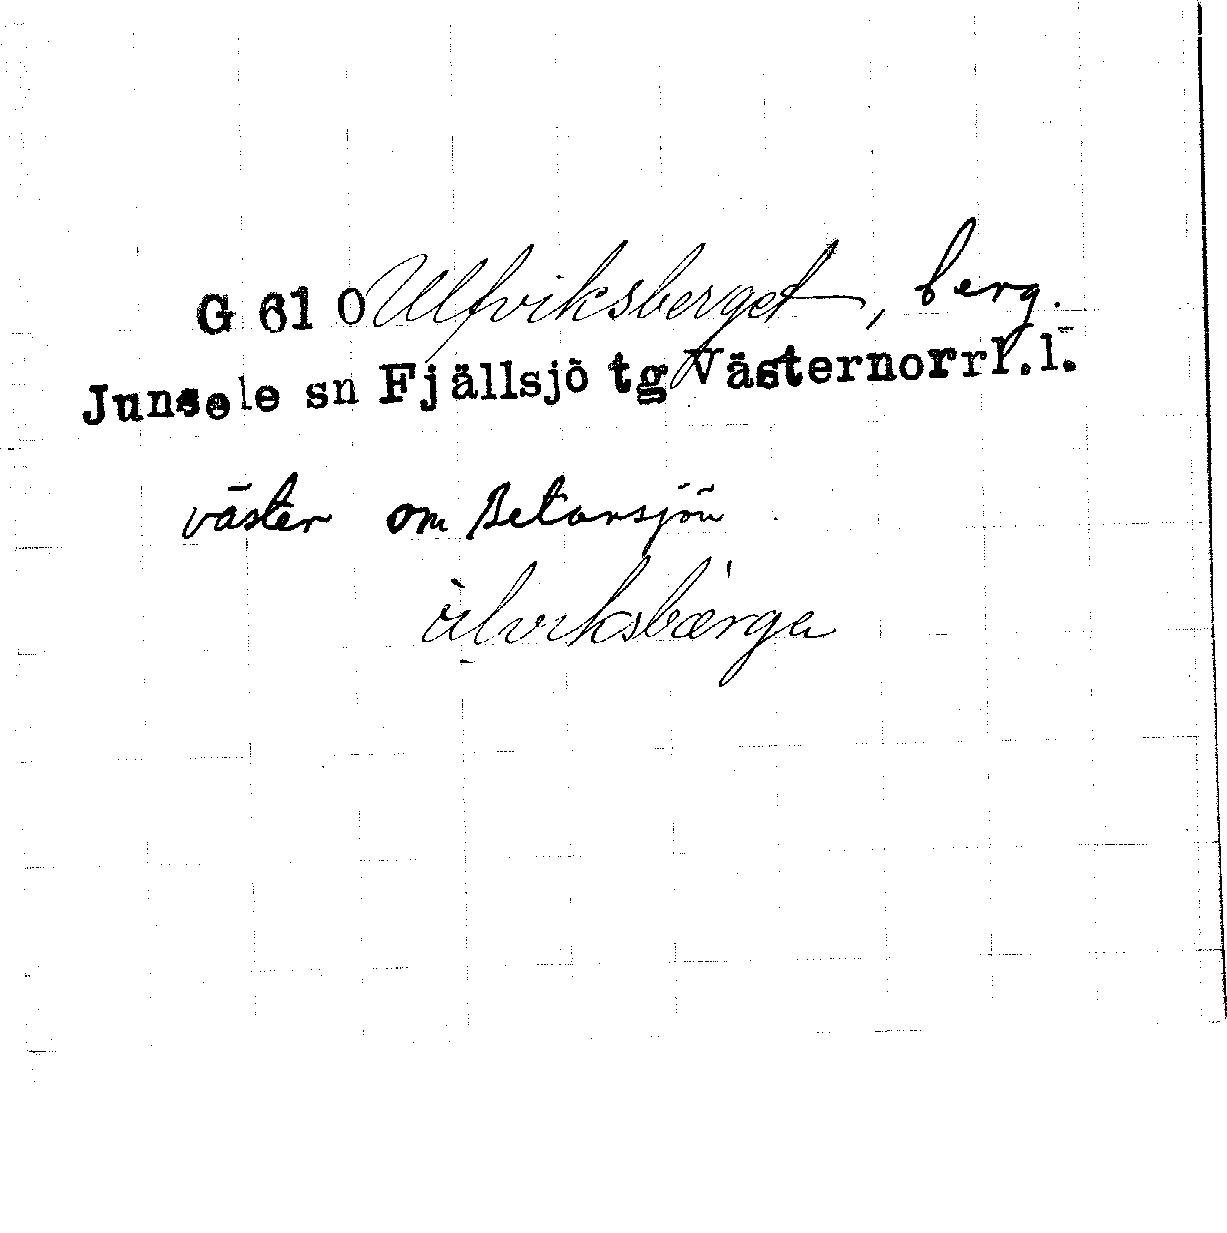 G 61 O Ulfviksberget, berg.
Junsele sn Fjällsjö tg Västernorrl.l.
väster om Betarsjön
ùlviksbærga